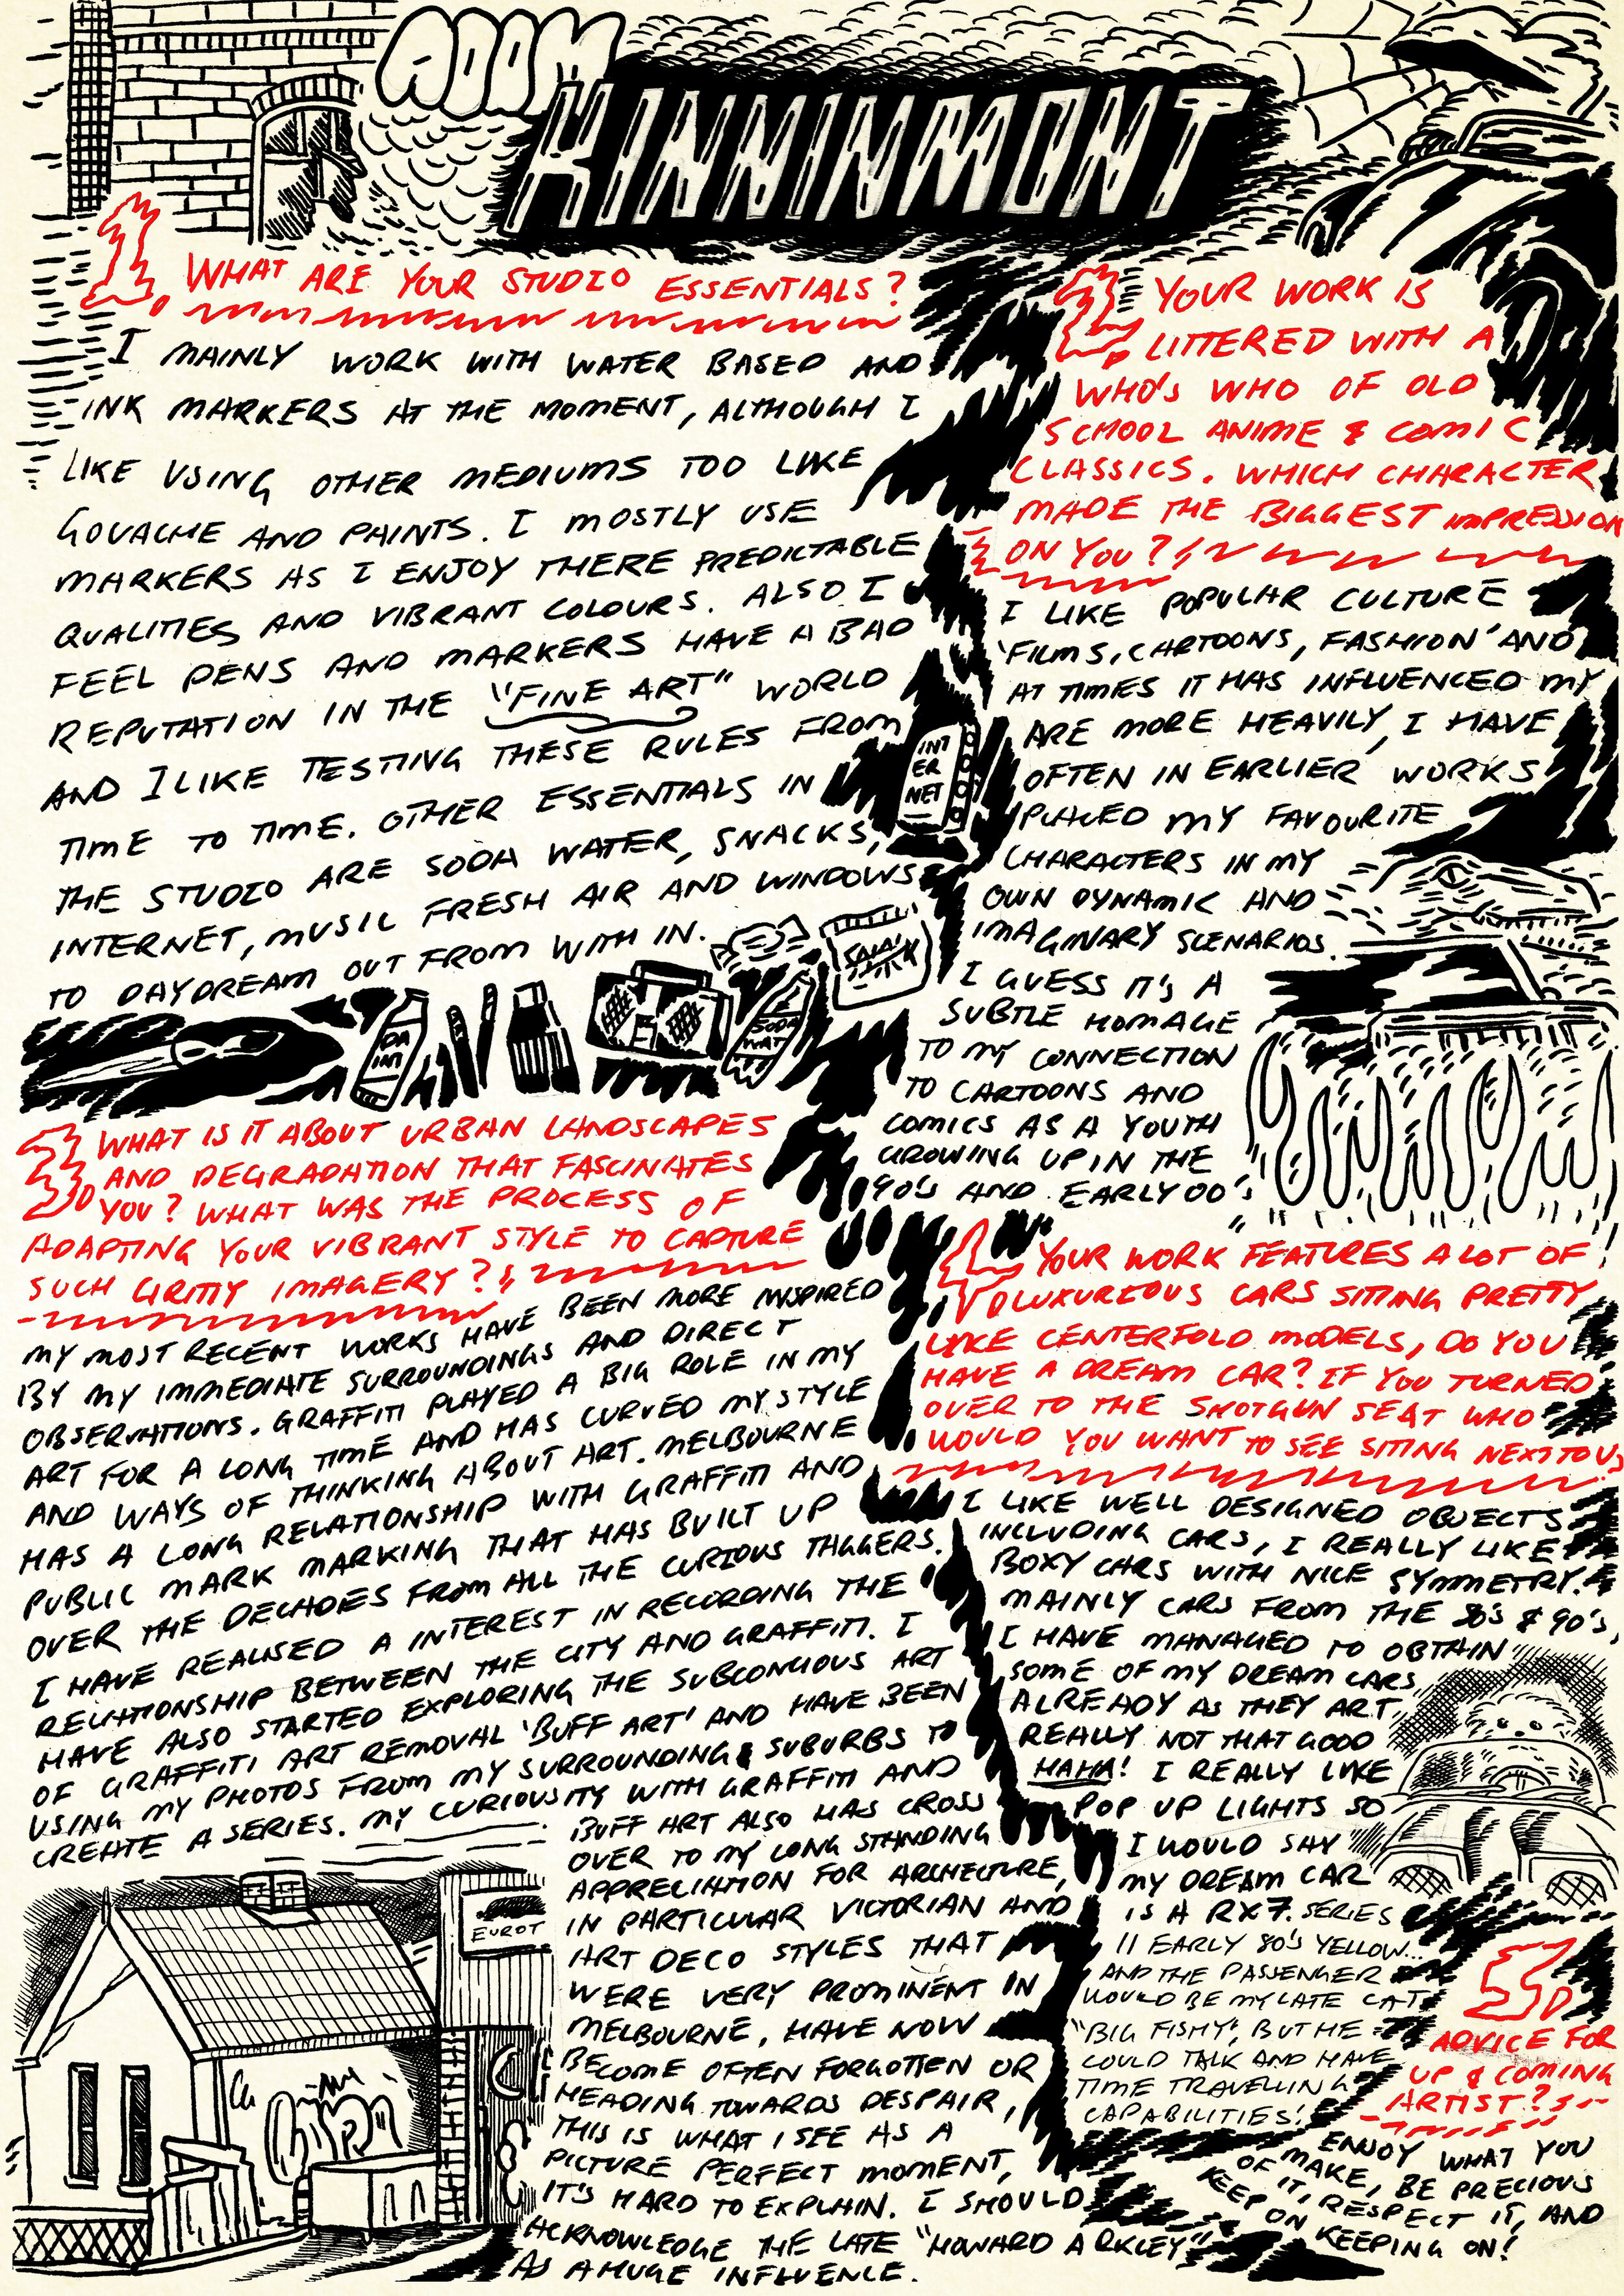 ADAM
HINNINMONT
WHAT ARE YOUR STUDIO ESSENTIALS?
I MAINLY WORK WITH WATER BASED AND
INK MARKERS AT THE MOMENT, ALTHOUGH I
LIKE USING OTHER MEDIUMS TOO LIKE
GOUACHE AND PAINTS. I MOSTLY USE
MARKERS AS I ENJOY THERE PREDICTABLE
QUALITIES AND VIBRANT COLOURS. ALSO I
FEEL PENS AND MARKERS HAVE A BAD
REPUTATION IN THE "FINE ART" WORLD
AND I LIKE TESTING THESE RULES FROM
TIME TO TIME. OTHER ESSENTIALS IN
THE STUDIO ARE SODA WATER, SNACKS,
INTERNET, MUSIC FRESH AIR AND WINDOWS
TO DAYDREAM OUT FROM WITH IN.
INT
ER
NET
SODA
WAT
WHAT IS IT ABOUT URBAN LANDSCAPES
AND DEGRADATION THAT FASCINATES
YOU? WHAT WAS THE PROCESS OF
ADAPTING YOUR VIBRANT STYLE TO CAPTURE
SUCH GRITTY IMAGERY?
MY MOST RECENT WORKS HAVE BEEN MORE INSPIRED
BY MY IMMEDIATE SURROUNDINGS AND DIRECT
OBSERVATIONS. GRAFFITI PLAYED A BIG ROLE IN MY
ART FOR A LONG TIME AND HAS CURVED MY STYLE
AND WAYS OF THINKING ABOUT ART. MELBOURNE
HAS A LONG RELATIONSHIP WITH GRAFFITI AND
PUBLIC MARK MARKING THAT HAS BUILT UP
OVER THE DECADES FROM ALL THE CURIOUS TAGGERS.
I HAVE REALISED A INTEREST IN RECORDING THE
RELATIONSHIP BETWEEN THE CITY AND GRAFFITI. I
HAVE ALSO STARTED EXPLORING THE SUBCONCIOUS ART
OF GRAFFITI ART REMOVAL 'BUFF ART' AND HAVE BEEN
USING MY PHOTOS FROM MY SURROUNDING SUBURBS TO
CREATE A SERIES. MY CURIOUSITY WITH GRAFFITI AND
BUFF ART ALSO HAS CROSS
OVER TO MY LONG STANDING
APPRECIATION FOR ARCHETURE,
IN PARTICULAR VICTORIAN AND
ART DECO STYLES THAT
WERE VERY PROMINENT IN
MELBOURNE, HAVE NOW
BECOME OFTEN FORGOTTEN OR
HEADING TOWARDS DESPAIR,
THIS IS WHAT I SEE AS A
PICTURE PERFECT MOMENT,
IT'S HARD TO EXPLAIN. I SHOULD
ACKNOWLEDGE THE LATE "HOWARD ARKLEY"
AS A HUGE INFLUENCE.
EUROT
YOUR WORK IS
LITTERED WITH A
WHO'S WHO OF OLD
SCHOOL ANIME & COMIC
CLASSICS. WHICH CHARACTER
MADE THE BIGGEST IMPRESSION
ON YOU?
I LIKE POPULAR CULTURE
'FILMS, CARTOONS, FASHION' AND
AT TIMES IT HAS INFLUENCED MY
ARE MORE HEAVILY, I HAVE
OFTEN IN EARLIER WORKS
PLACED MY FAVOURITE
CHARACTERS IN MY
OWN DYNAMIC AND
IMAGINARY SCENARIOS.
I GUESS IT'S A
SUBTLE HOMAGE
TO MY CONNECTION
TO CARTOONS AND
COMICS AS A YOUTH
GROWING UP IN THE
90'S AND EARLY 00'S
YOUR WORK FEATURES A LOT OF
LUXURIOUS CARS SITTING PRETTY
LIKE CENTERFOLD MODELS, DO YOU
HAVE A DREAM CAR? IF YOU TURNED
OVER TO THE SHOTGUN SEAT WHO
WOULD YOU WANT TO SEE SITING NEXT TO US
I LIKE WELL DESIGNED OBJECTS
INCLUDING CARS, I REALLY LIKE
BOXY CARS WITH NICE SYMMETRY.
MAINLY CARS FROM THE 80'S & 90'S,
I HAVE MANAGED TO OBTAIN
SOME OF MY DREAM CARS
ALREADY AS THEY ART
REALLY NOT THAT GOOD
HAHA! I REALLY LIKE
POP UP LIGHTS SO
I WOULD SAY
MY DREAM CAR
IS A RX7. SERIES
II EARLY 80'S YELLOW...
AND THE PASSENGER
WOULD BE MY LATE CAT
"BIG FISHY", BUT HE
COULD TALK AND HAVE
TIME TRAVELLING
CAPABILITIES!
ADVICE FOR
UP & COMING
ARTIST?
ENJOY WHAT YOU
MAKE, BE PRECIOUS
OF IT, RESPECT IT, AND
KEEP ON KEEPING ON!